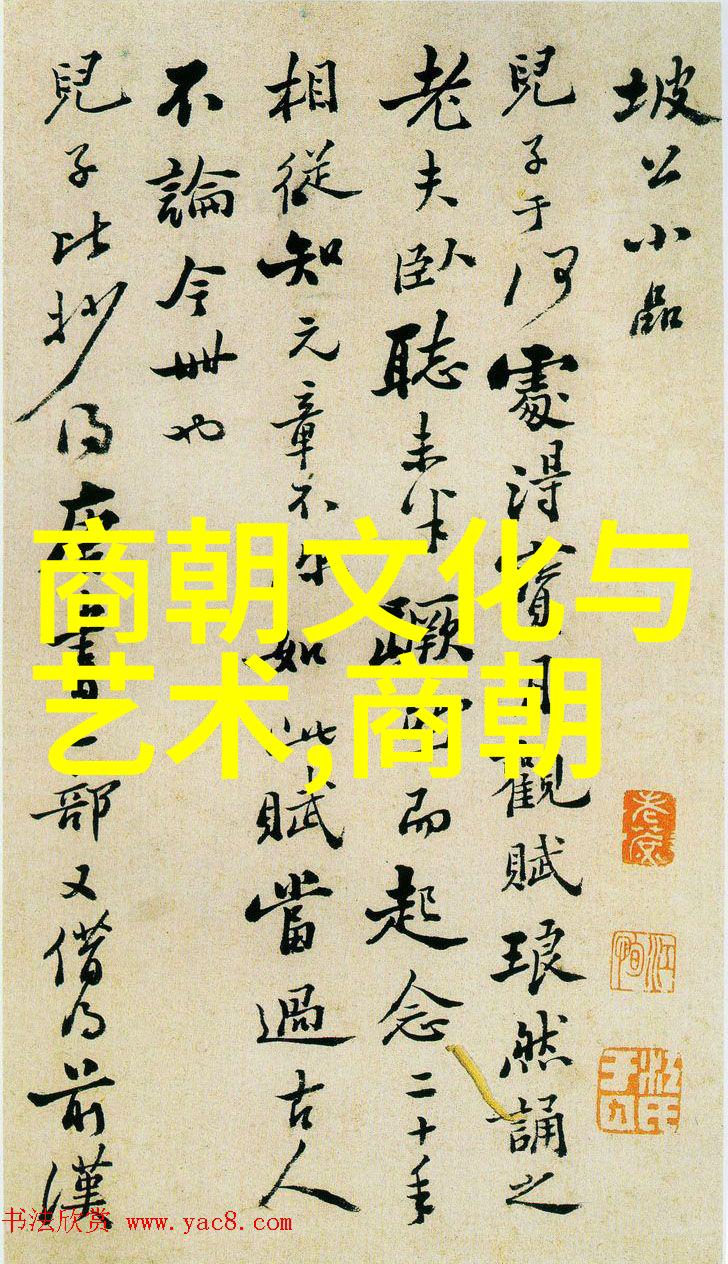 坡公小品
兒子于何處得寳月觀賦琅然誦之
老夫臥聽未半蹶而起念二十年
相從知元章不如此賦當過古人
不論今世也
兒子比抄得唐書一部又借得前漢
商朝文化与
艺术,商朝
书法欣赏 www.yac8.com